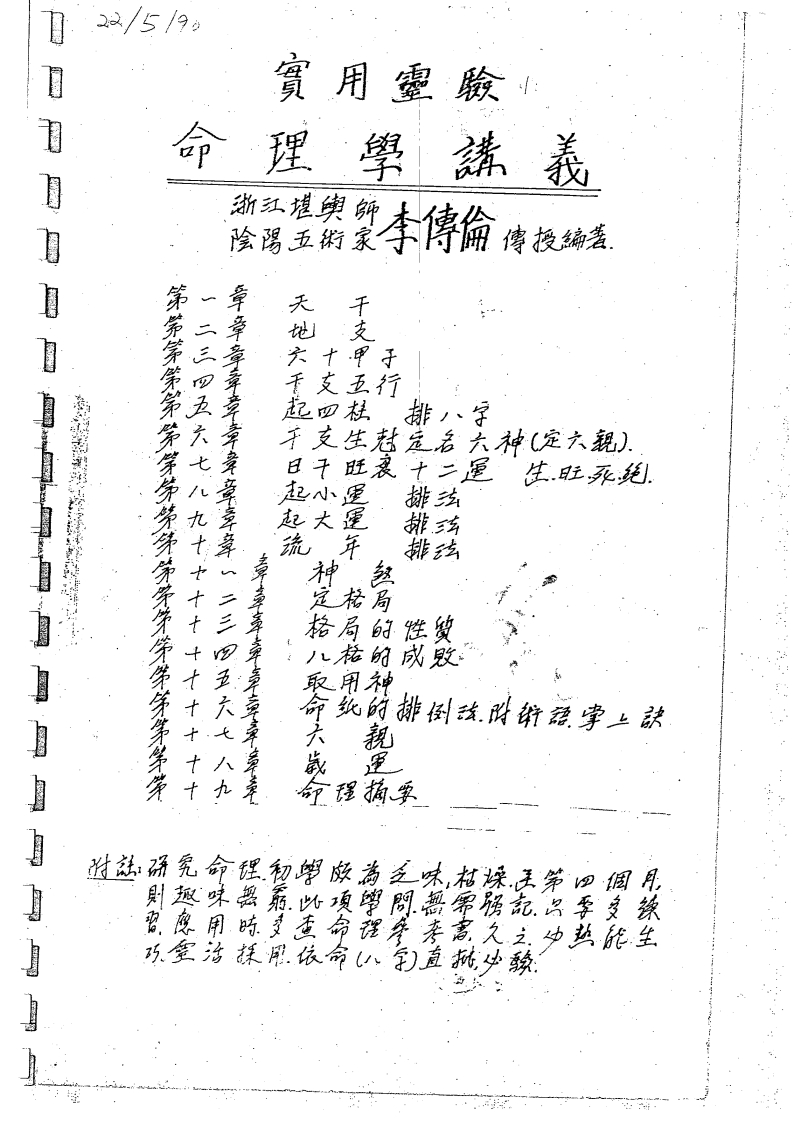 22/5/90
實用靈驗
命理學講義
浙江堪輿師
陰陽五術家 李傳倫 傳授編著.
第一章 天干
第二章 地支
第三章 六十甲子
第四章 干支五行
第五章 起四柱 排八字
第六章 干支生尅定名六神(定六親).
第七章 日干旺衰十二運 生.旺.死.絕.
第八章 起小運 排法
第九章 起大運 排法
第十章 流年 排法
第十一章 神煞
第十二章 定格局
第十三章 格局的性質
第十四章 八格的成敗
第十五章 取用神
第十六章 命紙的排倒法.附術語.掌上訣
第十七章 六親
第十八章 歲運
第十九章 命理摘要
附註:研究命理.初學頗為乏味,枯燥.至第四個月,
則趣味無窮.此項學問.無需强記.只要多練
習.應用時.多查命理參考書.久之.必熟能生
巧.靈活採用.依命(八字)直排.必驗.